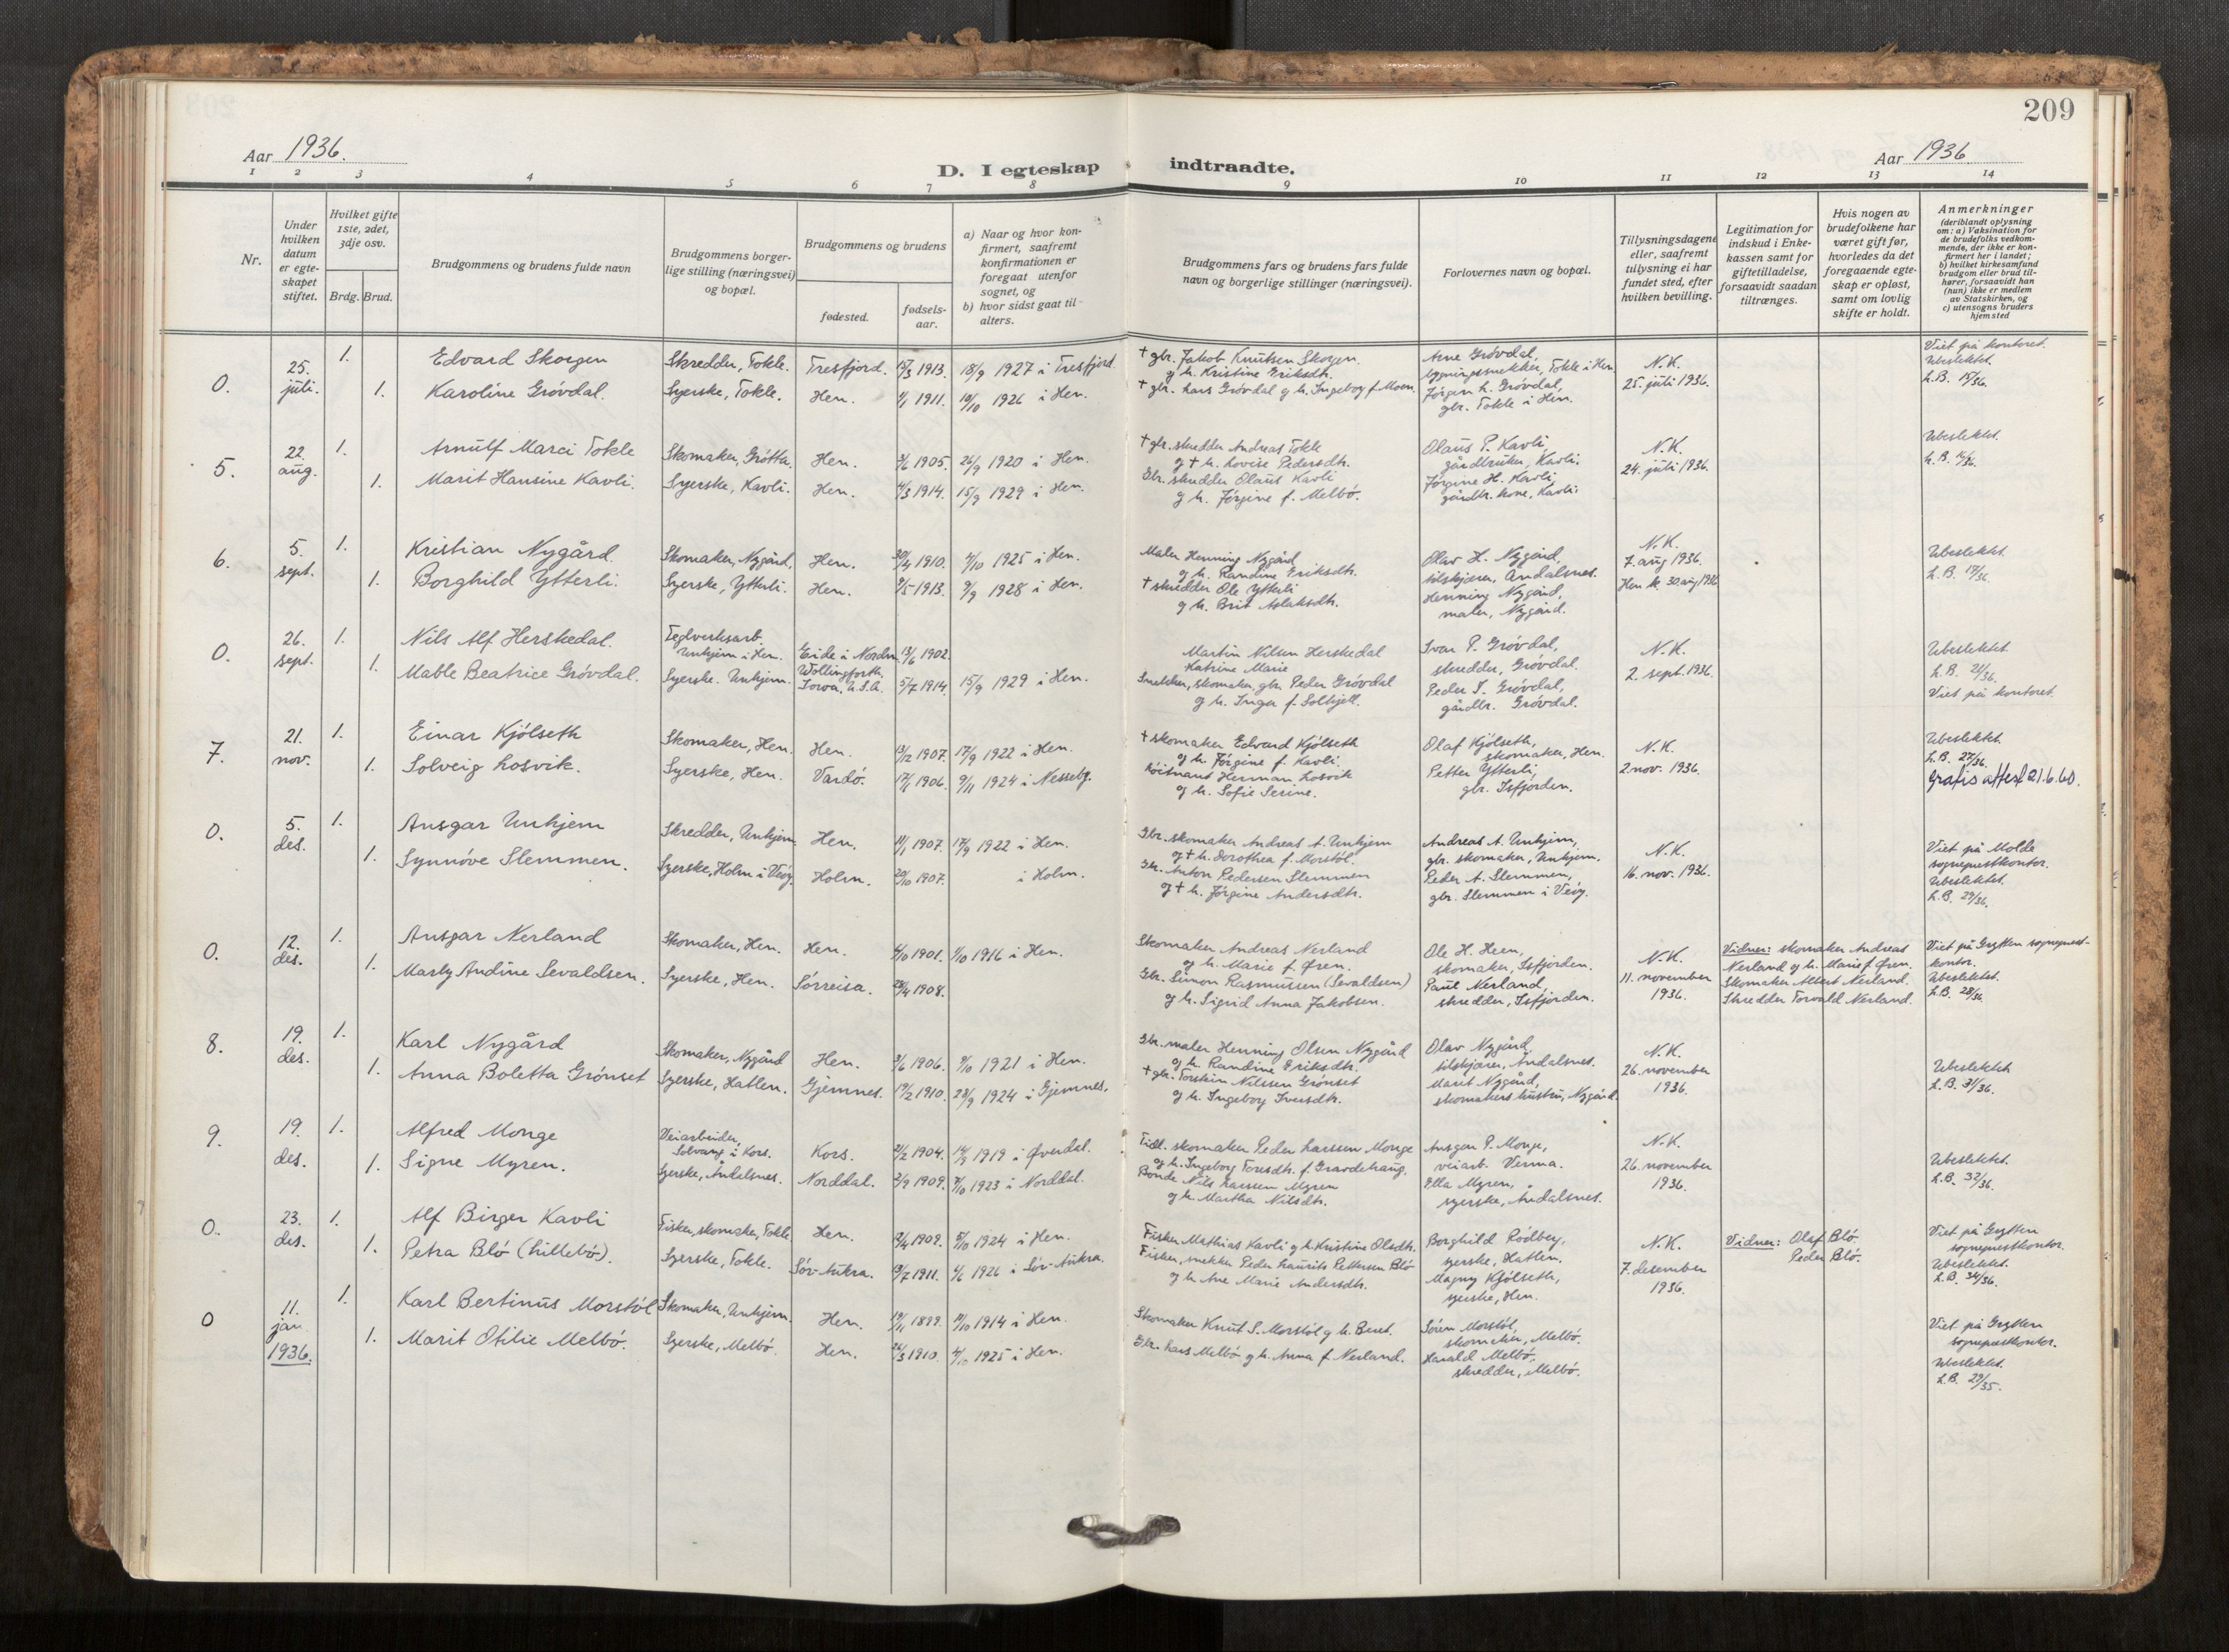 209
Aar 1936.
D. I egteskap indtraadte.
Aar 1936
1 2 3 4 5 6 7 8 9 10 11 12 13 14
Nr.
Under hvilken datum er egteskapet stiftet.
Hvilket gifte 1ste, 2det, 3dje osv.
Brdg. Brud.
Brudgommens og brudens fulde navn
Brudgommens borgerlige stilling (næringsvei) og bopæl.
Brudgommens og brudens
fødested.
fødselsaar.
a) Naar og hvor konfirmert, saafremt konfirmationen er foregaat utenfor sognet, og
b) hvor sidst gaat til alters.
Brudgommens fars og brudens fars fulde navn og borgerlige stillinger (næringsvei).
Forlovernes navn og bopæl.
Tillysningsdagene eller, saafremt tillysning ei har fundet sted, efter hvilken bevilling.
Legitimation for indskud i Enkekassen samt for giftetilladelse, forsaavidt saadan tiltrænges.
Hvis nogen av brudefolkene har været gift før, hvorledes da det foregaaende egteskap er opløst, samt om lovlig skifte er holdt.
Anmerkninger (deriblandt oplysning om: a) Vaksination for de brudefolks vedkommende, der ikke er konfirmert her i landet; b) hvilket kirkesamfund brudgom eller brud tilhører, forsaavidt han (hun) ikke er medlem av Statskirken, og c) utensogns bruders hjemsted
0. 25. juli. 1. 1.
Edvard Skorgen
Karoline Grövdal.
Skredder, Tokle.
Syerske, Tokle.
Tresfjord. 1913. 18/9 1927 i Tresfjord.
Hen. 1911. 10/10 1926 i Hen.
† gbr. Jakob Knutsen Skorgen
g h. Kristine Eriksdh.
† gbr. Lars Grövdal g h. Ingeborg f. Moen.
Arne Grövdal,
bygningssnekker, Tokle i Hen
Jörgen L. Grövdal,
gbr. Tokle i Hen.
N.K.
25. juli 1936.
Viet på kontoret.
Ubeslektet.
L.B. 15/36.
5. 22. aug. 1. 1.
Arnulf Marci Tokle
Marit Hansine Kavli.
Skomaker, Grötta.
Syerske, Kavli.
Hen. 3/6 1905. 26/9 1920 i Hen.
Hen. 1914. 15/9 1929 i Hen.
† gbr. skredder Andreas Tokle
g † h. Lovise Pedersdh.
Gbr. skredder Olaus Kavli
g h. Jörgine f. Melbö.
Olaus P. Kavli,
gårdbruker, Kavli.
Jörgine H. Kavli,
gårdbr. kone, Kavli.
N.K.
24. juli 1936.
Ubeslektet.
L.B. 16/36.
6. 5. sept. 1. 1.
Kristian Nygård
Borghild Ytterli.
Skomaker, Nygård.
Syerske, Ytterli.
Hen. 30/4 1910. 4/10 1925 i Hen.
Hen. 9/5 1913. 9/9 1928 i Hen.
Maler Henning Nygård
g h. Randine Eriksdh.
† skredder Ole Ytterli
g h. Brit Aslaksdh.
Olav H. Nygård,
tilskjærer, Åndalsnes.
Henning Nygård,
maler, Nygård.
N.K.
7. aug 1936.
Hen k. 30. aug 1936
Ubeslektet.
L.B. 17/36.
0. 26. sept. 1. 1.
Nils Alf Herskedal.
Mable Beatrice Grövdal.
Teglverksarb. Unhjem i Hen.
Syerske. Unhjem.
Eide i Nordm. 13/6 1902.
Wollingforth, Iowa, U.S.A. 5/7 1914. 15/9 1929 i Hen.
Martin Nilsen Herskedal
Katrine Marie
Snekker, skomaker, gbr. Peder Grövdal
g h. Inga f. Solhjell.
Ivar P. Grövdal,
skredder, Grövdal.
Peder I. Grövdal,
gårdbr. Grövdal.
N.K.
2. sept. 1936.
Ubeslektet
L.B. 21/36.
Viet på kontoret.
7. 21. nov. 1. 1.
Einar Kjölseth
Solveig Losvik.
Skomaker, Hen.
Syerske, Hen.
Hen. 13/12 1907. 17/9 1922 i Hen.
Vardö. 1906. 9/11 1924 i Nesseby.
† skomaker Edvard Kjölseth
g h. Jörgine f. Kavli.
Löitnant Herman Losvik
g h. Sofie Serine.
Olaf Kjölseth,
skomaker, Hen.
Petter Ytterli,
gbr. Isfjorden.
N.K.
2. nov. 1936.
Ubeslektet.
L.B. 27/36.
Gratis attest 21.6.60.
0. 5. des. 1. 1.
Ansgar Unhjem
Synnöve Slemmen.
Skredder, Unhjem
Syerske, Holm i Veöy.
Hen. 1907. 17/9 1922 i Hen.
Holm. 20/10 1907. i Holm.
Gbr. skomaker Andreas A. Unhjem
g † h. Dorothea f. Morstöl.
Gbr. Anton Pedersen Slemmen
g † h. Jörgine Andersdh.
Andreas A. Unhjem,
gbr. skomaker, Unhjem.
Peder A. Slemmen,
gbr. Slemmen i Veöy.
N.K.
16. nov. 1936.
Viet på Molde
sogneprestkontor.
Ubeslektet.
L.B. 29/36.
0. 12. des. 1. 1.
Ansgar Nerland
Marly Andine Sevaldsen.
Skomaker, Hen.
Syerske, Hen.
Hen. 1901. 1/10 1916 i Hen.
Sørreisa. 28/4 1908.
Skomaker Andreas Nerland
g h. Marie f. Øren.
Gbr. Simon Rasmussen (Sevaldsen)
g h. Sigrid Anna Jakobsen.
Ole H. Heen,
skomaker, Isfjorden.
Paul Nerland,
skredder, Isfjorden.
N.K.
11. november
1936.
Vidner: skomaker Andreas
Nerland g h. Marie f. Øren.
Skomaker Albert Nerland.
Skredder Torvald Nerland.
Viet på Grytten sogneprest-
kontor.
Ubeslektet.
L.B. 28/36
8. 19. des. 1. 1.
Karl Nygård
Anna Boletta Grönset
Skomaker, Nygård
Syerske, Hatlen.
Hen. 3/6 1906. 9/10 1921 i Hen.
Gjemnes. 19/2 1910. 28/9 1924 i Gjemnes.
Gbr. maler Henning Olsen Nygård
g h. Randine Eriksdh.
† gbr. Torstein Nilssen Grönset
g h. Ingeborg Iversdh.
Olav Nygård,
tilskjærer, Åndalsnes.
Marit Nygård,
skomakers hustru, Nygård.
N.K.
26. november
1936.
Ubeslektet
L.B. 31/36.
9. 19. des. 1. 1.
Alfred Monge
Signe Myren.
Veiarbeider, Solvang i Kors.
Syerske, Åndalsnes.
Kors. 2/2 1904. 14/9 1919 i Øverdal.
Norddal. 2/9 1909. 7/10 1923 i Norddal.
Tidl. skomaker Peder Larssen Monge
g h. Ingeborg Toresdh. f. Gravdehaug.
Bonde Nils Larssen Myren
g h. Martha Nilsdh.
Ansgar P. Monge,
veiarb. Verma.
Ella Myren,
syerske, Åndalsnes.
N.K.
26. november
1936.
Ubeslektet.
L.B. 32/36.
0. 23. des. 1. 1.
Alf Birger Kavli
Petra Blö (Lillebö).
Fisker, skomaker, Tokle
Syerske, Tokle.
Hen. 1909. 5/10 1924 i Hen.
Sör-Aukra. 1911. 1926 i Sör-Aukra.
Fisker Mathias Kavli g h. Kristine Olsdh.
Fisker, snekker Peder Laurits Pettersen Blö
g h. Ane Marie Andersdh.
Borghild Rödberg,
syerske, Hatlen.
Magny Kjölseth,
syerske, Hen.
N.K.
7. desember
1936.
Vidner: Olaf Blö.
Peder Blö.
Viet på Grytten
sogneprestkontor.
Ubeslektet.
L.B. 34/36.
0 11. jan 1936. 1. 1.
Karl Bertinus Morstöl
Marit Otilie Melbö.
Skomaker, Unhjem.
Syerske, Melbö.
Hen. 19/11 1899. 1914 i Hen.
Hen. 26/3 1910. 4/10 1925 i Hen.
Skomaker Knut S. Morstöl g h. Beret.
Gbr. Lars Melbö g h. Anna f. Nerland.
Sören Morstöl,
skomaker, Melbö.
Harald Melbö,
skredder, Melbö.
Viet på Grytten
sogneprestkontor.
Ubeslektet.
L.B. 29/35.